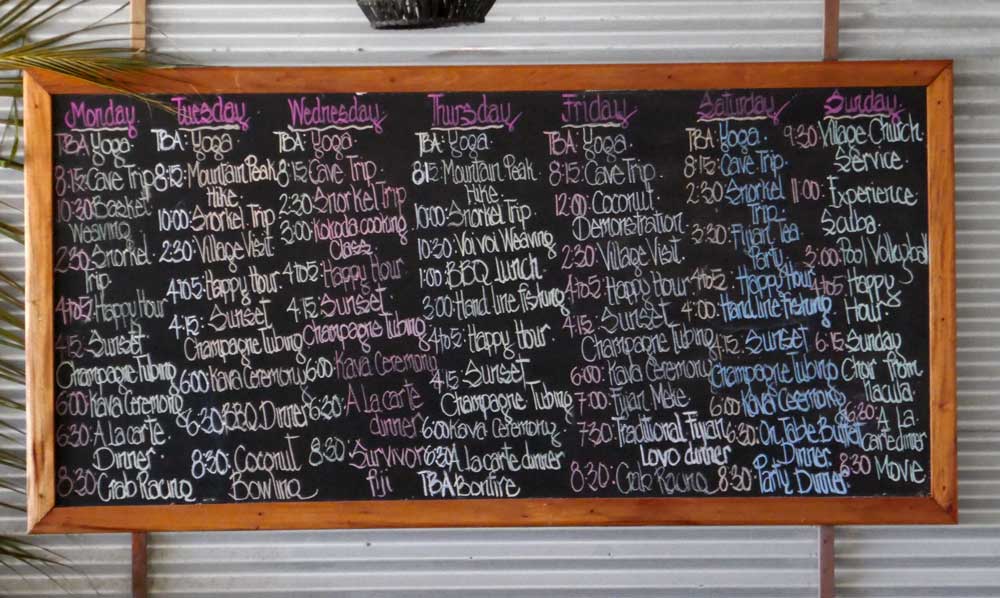 Monday
TBA: Yoga.
8:15: Cave Trip
10:30: Basket
Weaving
2:30: Snorkel.
Trip.
4to5: Happy Hour
4:15: Sunset
Champagne Tubing
6:00: Kava Ceremony
6:30: A La carte.
Dinner.
8:30: Crab Racing
Tuesday
TBA: Yoga.
8:15: Mountain Peak
Hike.
10:00: Snorkel Trip
2:30: Village Visit
4to5: Happy Hour
4:15: Sunset
Champagne Tubing
6:00: Kava Ceremony
6:30: BBQ Dinner
8:30: Coconut
Bowling
Wednesday
TBA: Yoga.
8:15: Cave Trip.
2:30: Snorkel Trip
3:00: Kokoda cooking
Class.
4to5: Happy Hour
4:15: Sunset
Champagne Tubing
6:00: Kava Ceremony
6:30: A La carte
dinner
8:30: Survivor
Fiji
Thursday
TBA: Yoga.
8:15: Mountain Peak.
Hike.
10:00: Snorkel Trip
10:30: Voi voi Weaving
1:00: BBQ Lunch.
3:00: Hand line fishing
4to5: Happy Hour.
4:15: Sunset
Champagne Tubing
6:00: Kava Ceremony
6:30: A La carte dinner
TBA: Bonfire
Friday
TBA: Yoga.
8:15: Cave Trip.
12:00: Coconut.
Demonstration.
2:30: Village Visit.
4to5: Happy Hour
4:15: Sunset.
Champagne Tubing
6:00: Kava Ceremony
7:00: Fijian Meke.
7:30: Traditional Fijian
Lovo dinner
8:30: Crab Racing
Saturday
TBA: Yoga.
8:15: Cave Trip.
2:30: Snorkel
Trip.
3:30: Fijian Tea
Party.
4to5: Happy Hour
4:00: Hand line fishing
4:15: Sunset
Champagne Tubing
6:00: Kava Ceremony
6:30: On Table Buffet
Dinner.
8:30: Party Dinner
Sunday.
9:30: Village Church
Service.
11:00: Experience
Scuba.
3:00: Pool Volleyball
4to5: Happy
Hour.
6:15: Sunday
Choir from
Nacula
6:30: A La
carte dinner
8:30 Movie